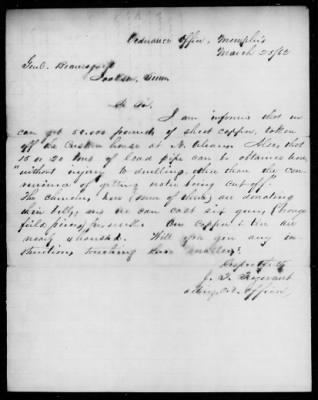 Ordnance Office, Memphis
March 25/62
Genl. Beauregard
Jackson, Tenn
Dr Sir.
I am informed that we
can get 52.000 pounds of sheet copper, taken
off the Custom house at N. Orleans. Also, that
15 or 20 tons of lead pipe can be obtained here,
without injury to dwellings, other than the con-
venience of getting water being cut off.
The churches, here (some of them) are donating
their bells, and we can cast six guns, (bronze
field pieces) per week. Our copper & tin are
nearly exhausted. Will you give any in-
structions, touching these matters?
Respectfully
J. T. Trezevant
acting Ord. Officer,